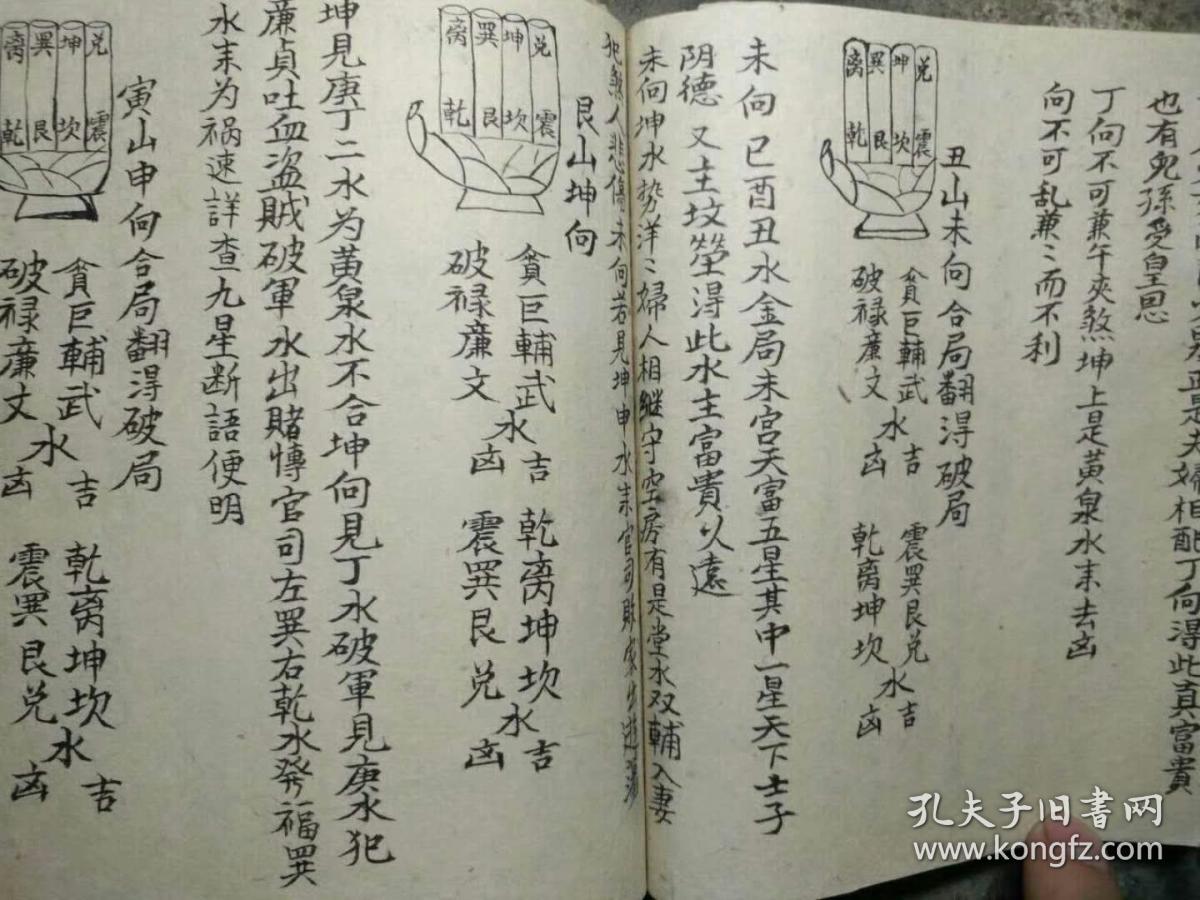 是正是夫婦相配丁向得此真富貴
也有兒孫受皇恩
丁向不可兼午夾煞坤上是黃泉水耒去凶
向不可乱兼〻而不利
丑山未向合局翻得破局
兑 坤 巽 离
震 坎 艮 乾
貪巨輔武
破禄廉文
水
吉
凶
震巽艮兑
乾离坤坎
水
吉
凶
未向巳酉丑水金局未宫天富五星其中一星天下士子
阴德 又主坟塋得此水主富貴以遠
未向坤水势洋〻婦人相継守空房有是堂水双輔入妻
犯煞人悲傷未向若見坤申水耒官司敗家出遊蕩
艮山坤向
兑 坤 巽 离
震 坎 艮 乾
貪巨輔武
破禄廉文
水
吉
凶
乾离坤坎
震巽艮兑
水
吉
凶
坤見庚丁二水为黄泉水不合坤向見丁水破軍見庚水犯
廉貞吐血盗贼破軍水出賭慱官司左巽右乾水発福巽
水耒为祸速詳查九星断語便明
寅山申向合局翻得破局
兑 坤 巽 离
震 坎 艮 乾
貪巨輔武
破禄廉文
水
吉
凶
乾离坤坎
震巽艮兑
水
吉
凶
孔夫子旧书网
www.kongfz.com